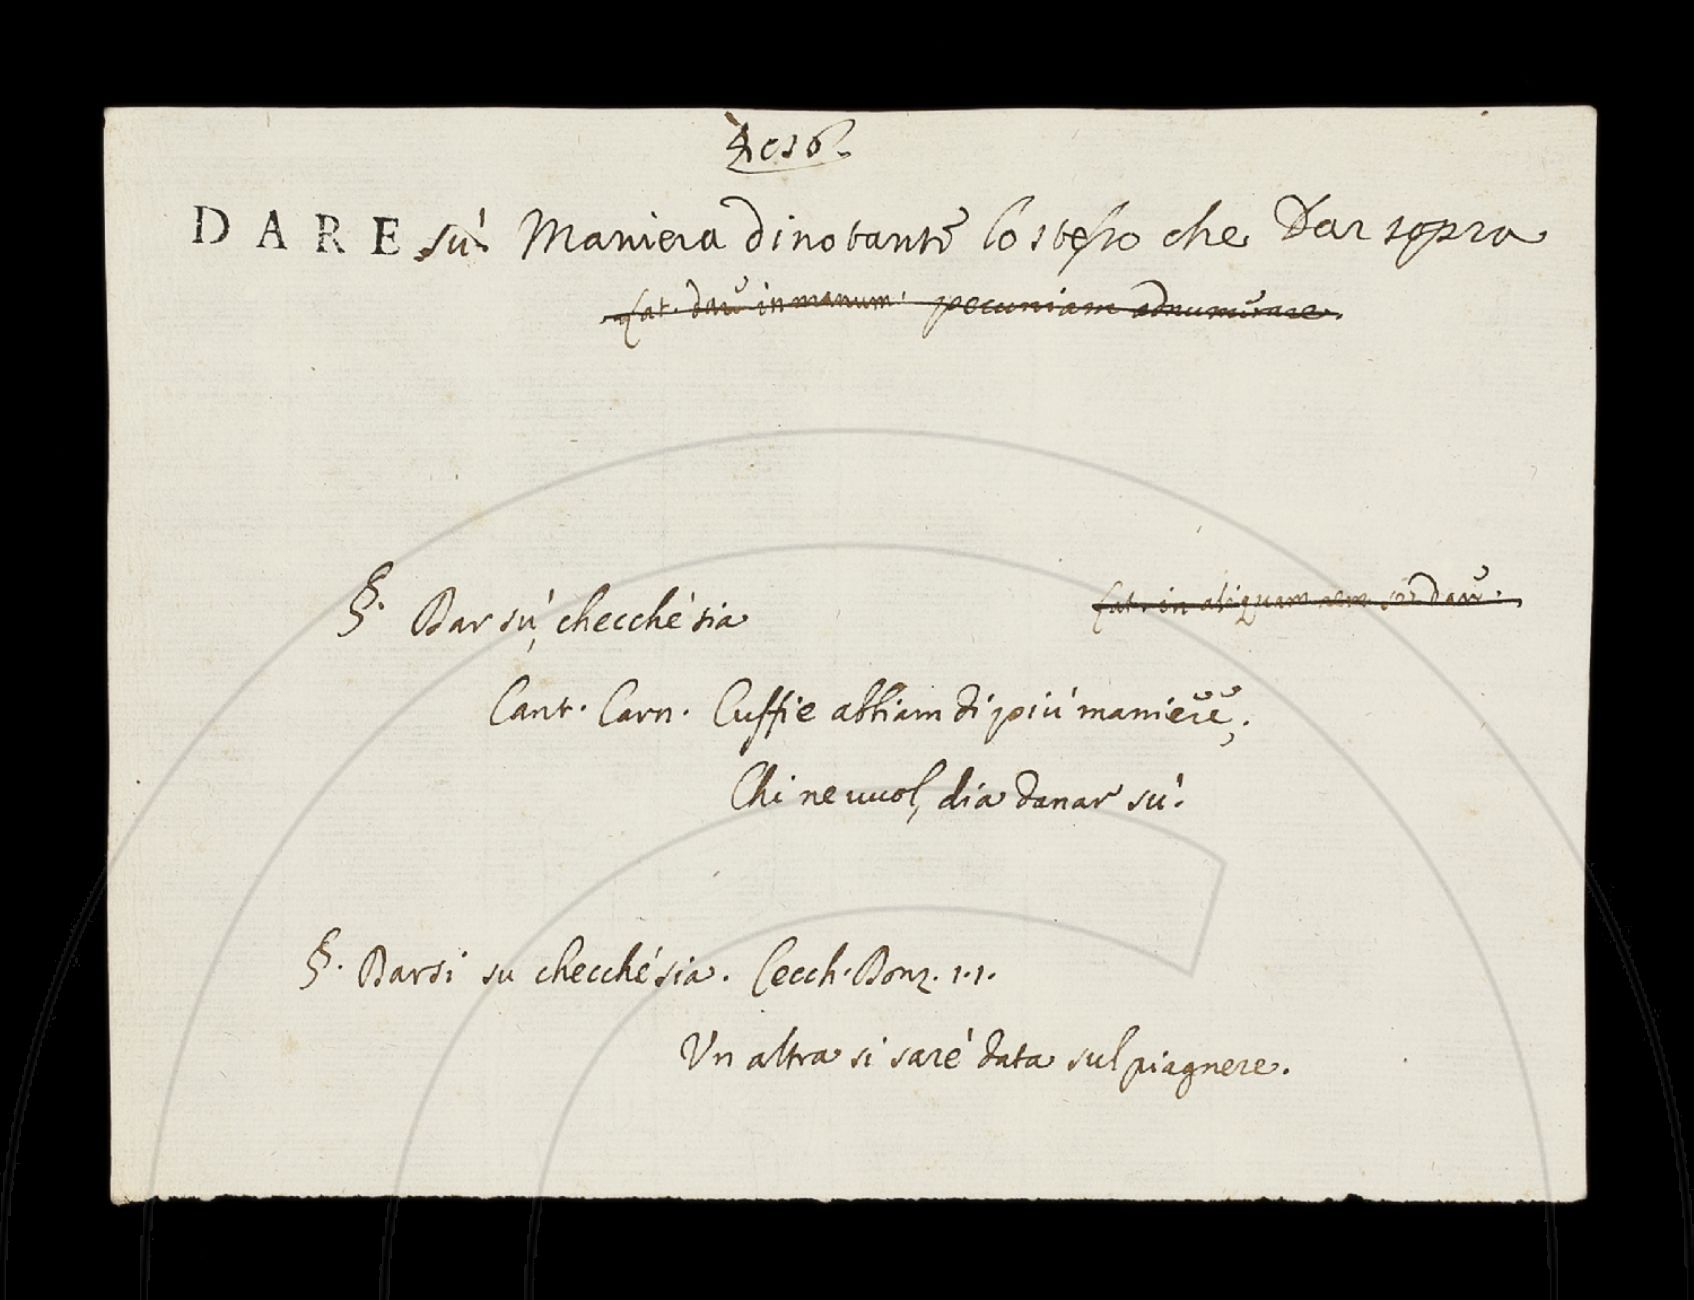 DARE sù. Maniera dinotante lo stesso che Dar sopra
Lat. dare in manum. pecuniam adnumerare.
§. Dar sù, checché sia
Lat. in aliquam rem se dare.
Cant. Carn. Cuffie abbiam di più maniere;
Chi ne vuol, dia danar sù.
§. Darsi su checché sia. Cecch. Donz. 1.1.
Un altra si saré data sul piagnere.